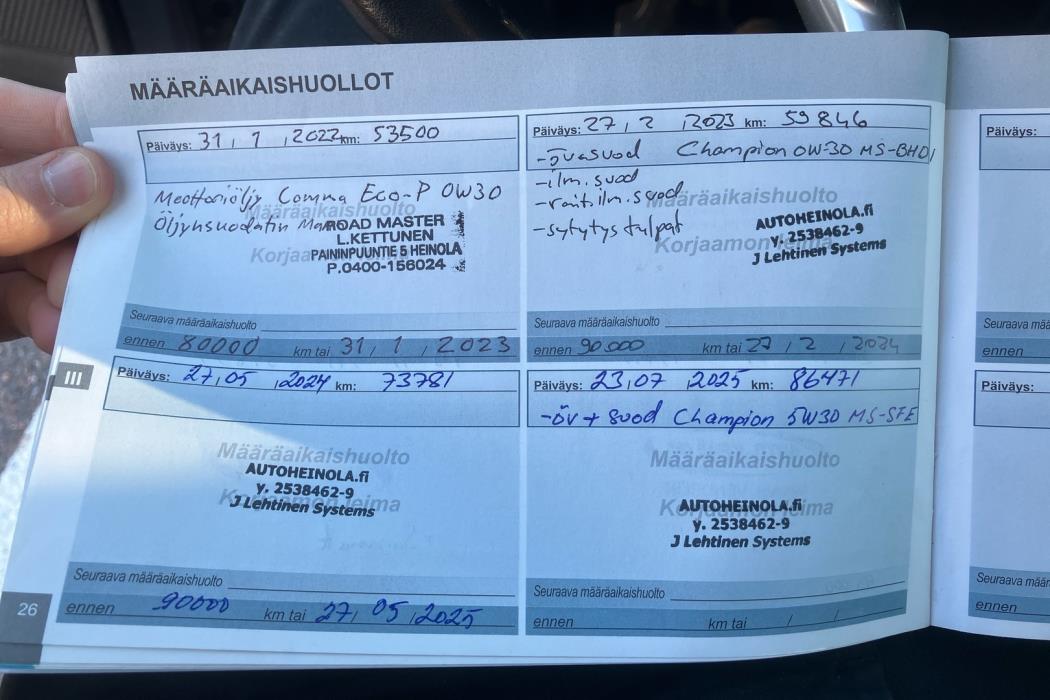 MÄÄRÄAIKAISHUOLLOT
Päiväys: 31 / 1 / 2022 km: 53500
Moottoriöljy Comma Eco-P 0W30
Öljynsuodatin
Määräaikaishuolto
ROAD MASTER
L.KETTUNEN
PAININPUUNTIE 5 HEINOLA
P.0400-156024
Seuraava määräaikaishuolto
ennen 80000 km tai 31 / 1 / 2023
Päiväys: 27 / 2 / 2023 km: 59846
-öv+suod Champion 0W-30 MS-BHDI
-ilm.suod
-rait.ilm.suod
-sytytystulpat
Määräaikaishuolto
Korjaamon leima
AUTOHEINOLA.fi
y. 2538462-9
J Lehtinen Systems
Seuraava määräaikaishuolto
ennen 90000 km tai 27 / 2 / 2024
III
Päiväys: 27 / 05 / 2024 km: 73781
Määräaikaishuolto
Korjaamon leima
AUTOHEINOLA.fi
y. 2538462-9
J Lehtinen Systems
Seuraava määräaikaishuolto
ennen 90000 km tai 27 / 05 / 2025
Päiväys: 23 / 07 / 2025 km: 86471
-öv + suod Champion 5W30 MS-SFE
Määräaikaishuolto
Korjaamon leima
AUTOHEINOLA.fi
y. 2538462-9
J Lehtinen Systems
Seuraava määräaikaishuolto
ennen km tai / /
26
Päiväys:
Seuraava
ennen
Päiväys:
Seuraava
ennen